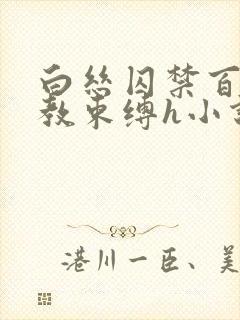 白丝囚禁百
教束缚h小
港川一臣、美